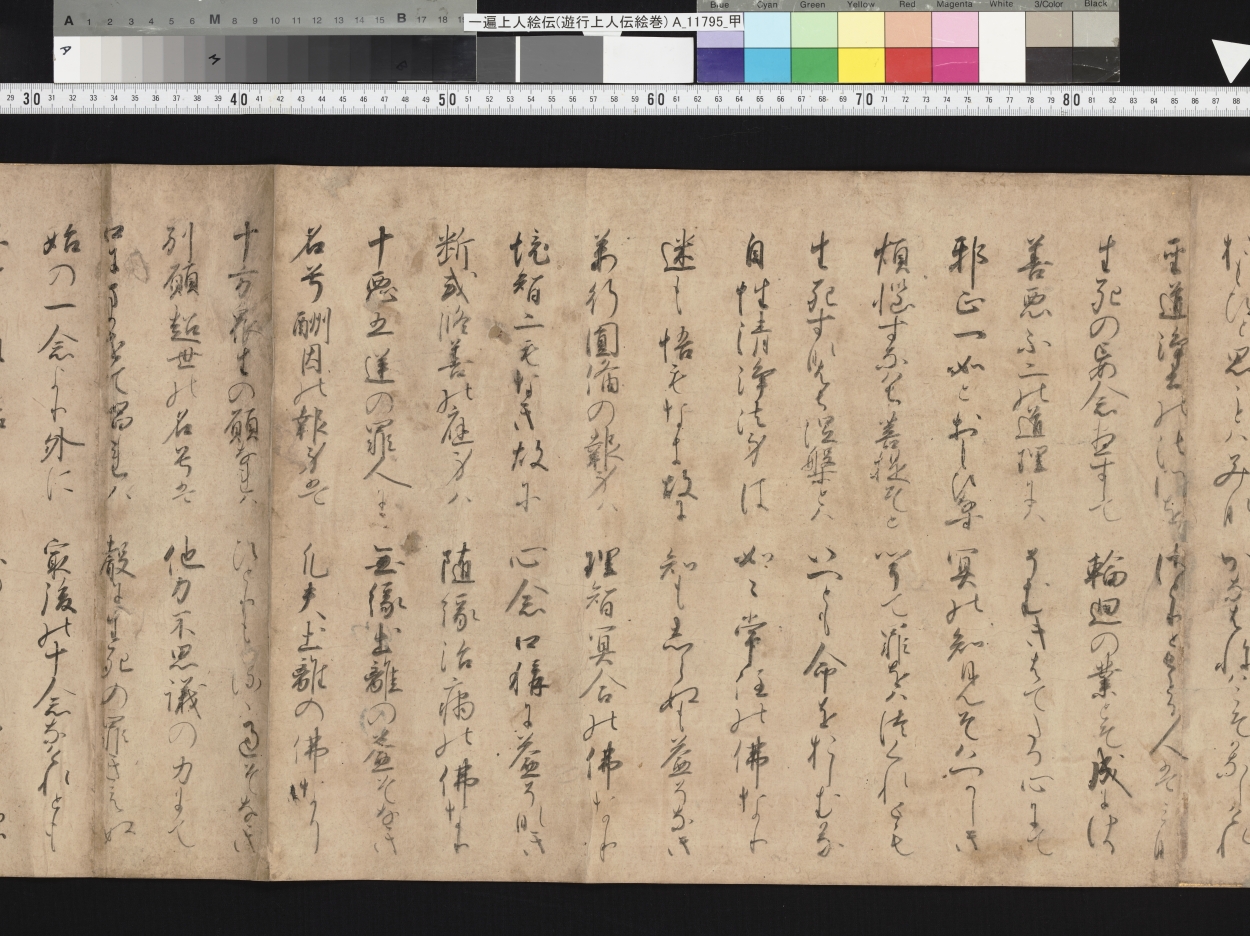 A 1 2 3 4 5 6 M 8 9 10 11 12 13 14 15 B 17 18
一遍上人絵伝(遊行上人伝絵巻) A_11795_甲
Blue Cyan Green Yellow Red Magenta White 3/Color Black
29 30 31 32 33 34 35 36 37 38 39 40 41 42 43 44 45 46 47 48 49 50 51 52 53 54 55 56 57 58 59 60 61 62 63 64 65 66 67 68 69 70 71 72 73 74 75 76 77 78 79 80 81 82 83 84 85 86 87 88
聖道浄土の法門を さとりとさとる人はみな
生死の妄念つきすして 輪廻の業とそ成にける
善悪不二の道理には そむきはてたる心にて
邪正一如とおもひなす 冥の知見そはつかしき
煩悩すなはち菩提そと 聞て罪をはつくれとも
生死すなはち涅槃とは いへとも命をおしむかな
自性清浄法身は 如々常住の佛なり
迷も悟もなきゆ故に 知もしらぬも益そなき
萬行圓備の報身は 理智冥合の佛なり
境智二もなき故に 心念口称に益そなき
断或修善の應身は 随縁治病の佛なり
十悪五逆の罪人に 無縁出離の益そなき
名号酬因の報身は 凡夫出離の佛なり
十方衆生の願なれは ひとりももるゝ過そなき
別願超世の名号は 他力不思議の力にて
口にまかせて唱れは 聲に生死の罪きえぬ
始の一念より外に 最後の十念なけれとも